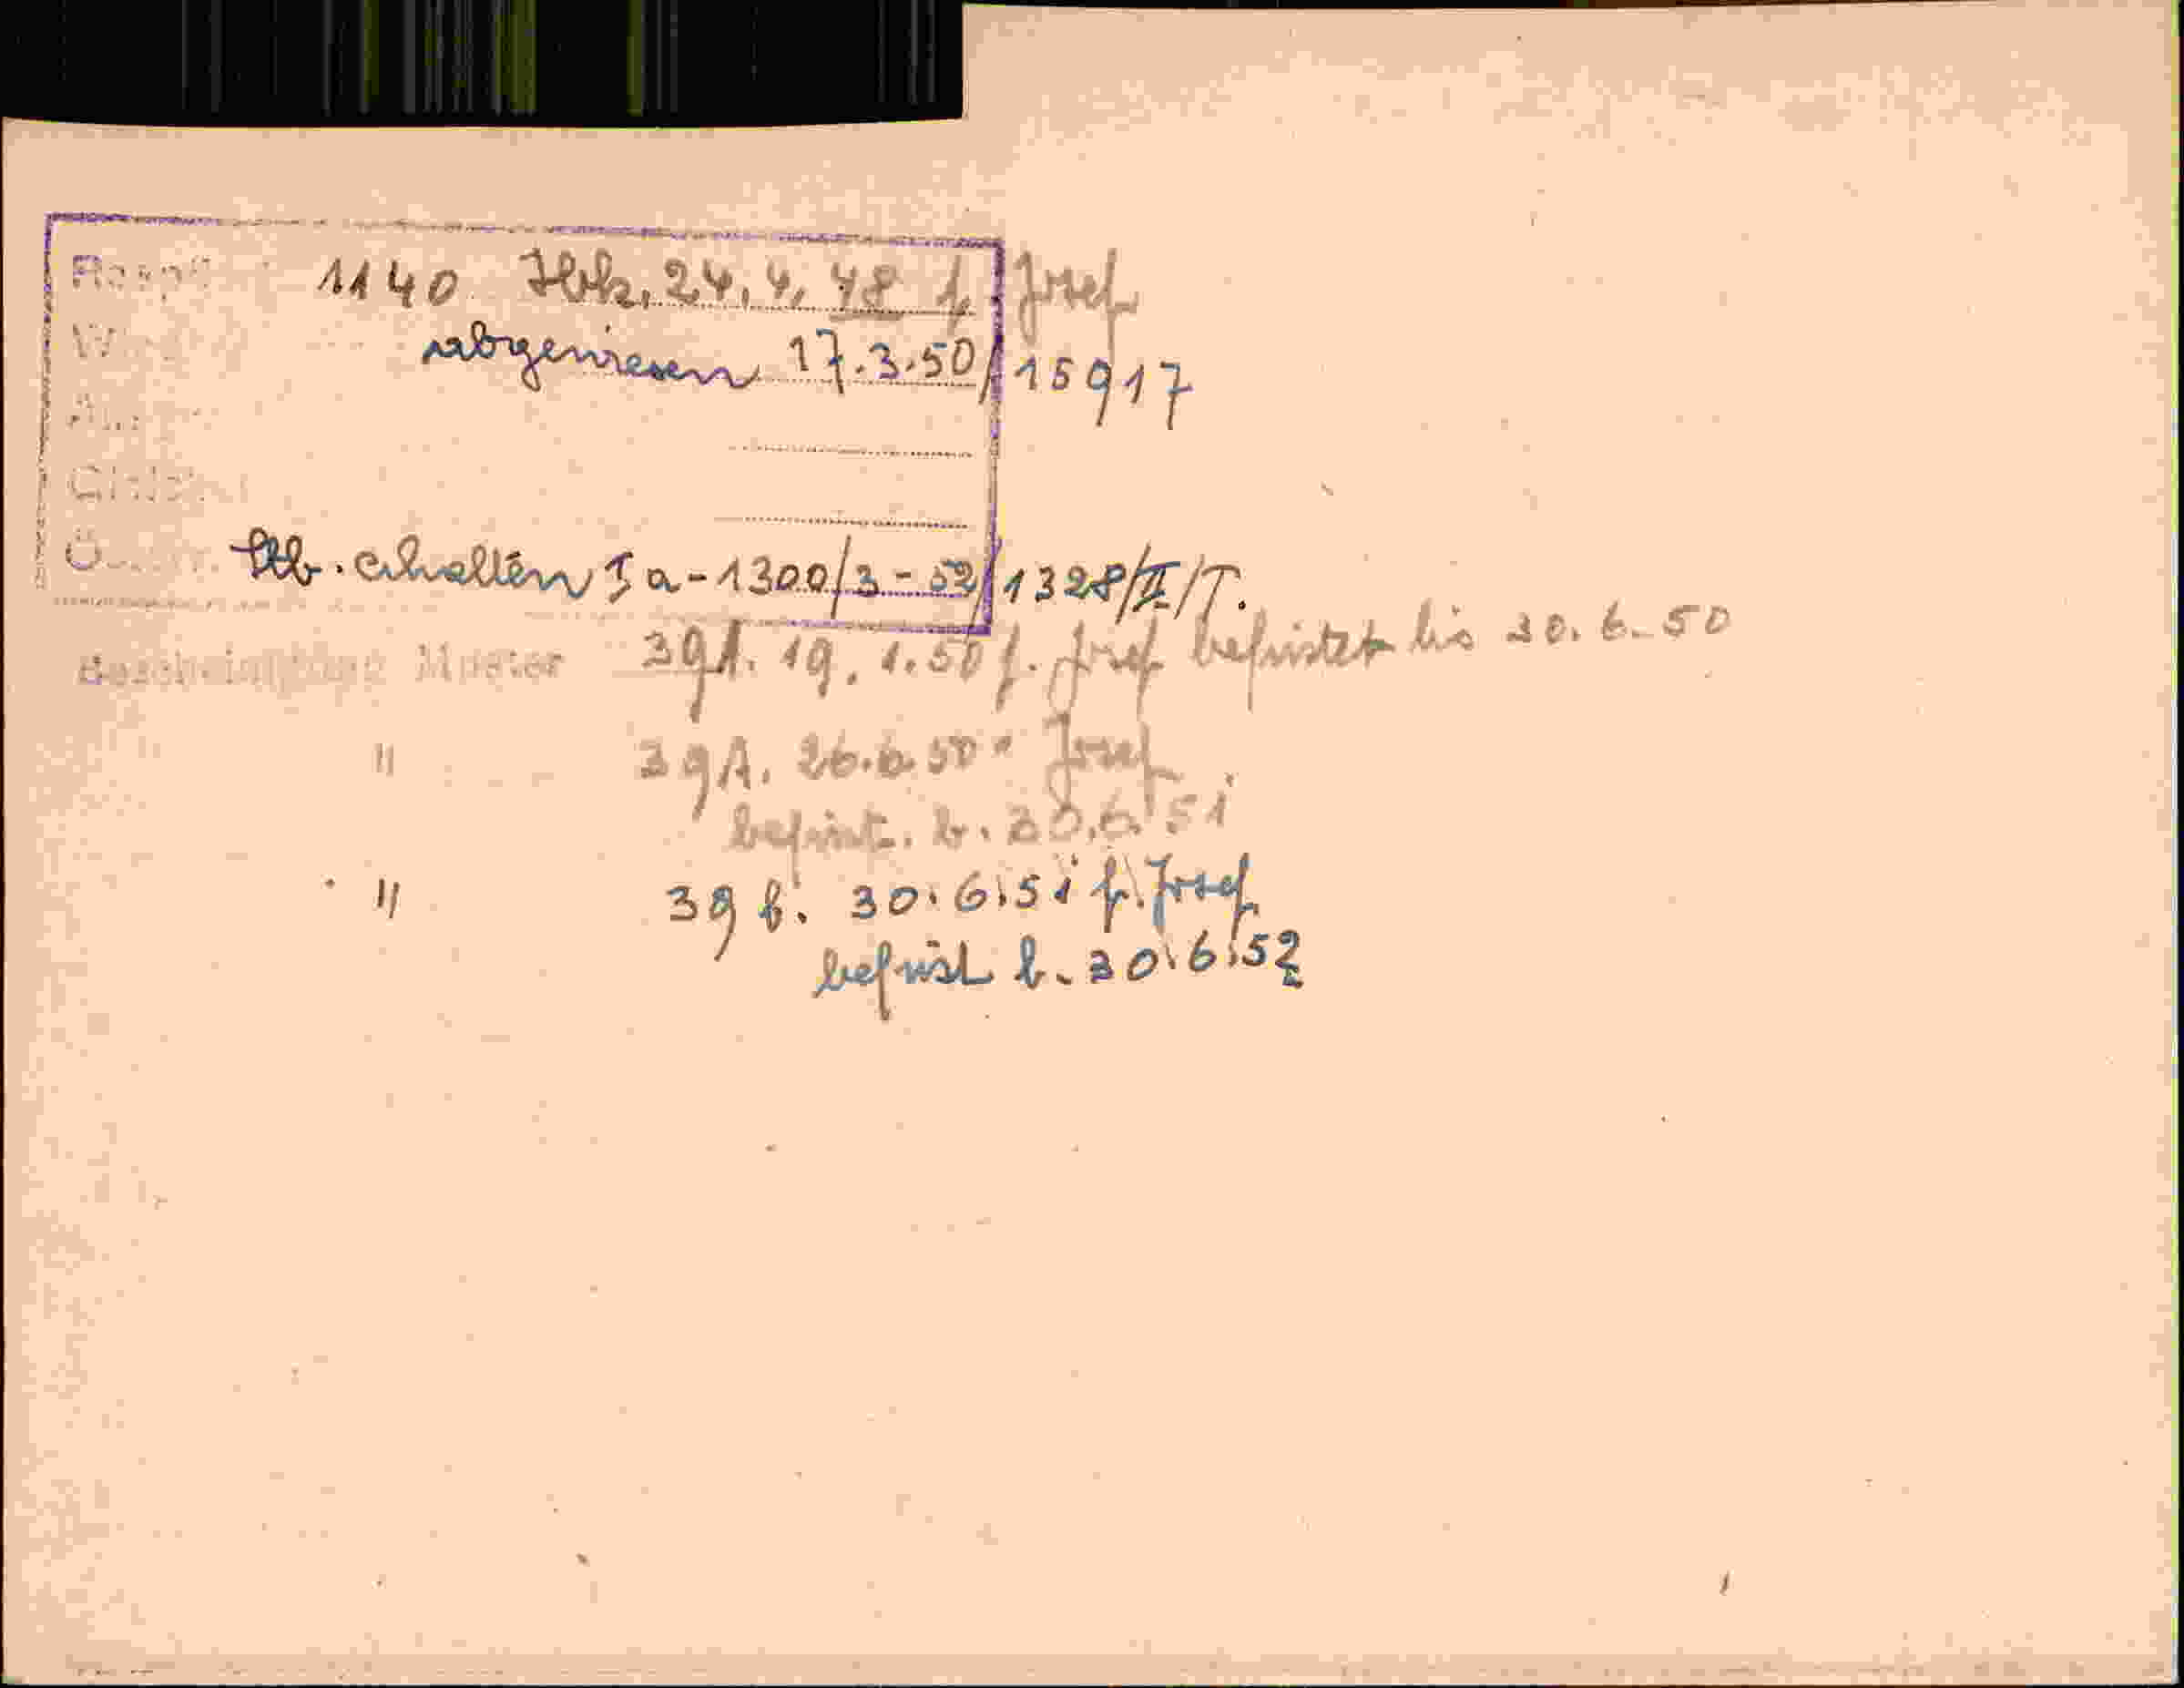 1140 Hbk. 24.4.48 f. Josef
abgewiesen 17.3.50/15917
Stb. erhalten Ia-1300/3-52/1328/II/T.
Bescheinigung Muster 39A. 19.1.50 f. Josef befristet bis 30.6.50
" 39A. 26.6.50 " Josef
befrist. b. 30.6.51
" 39 b. 30.6.51 f. Josef
befrist b. 30.6.52